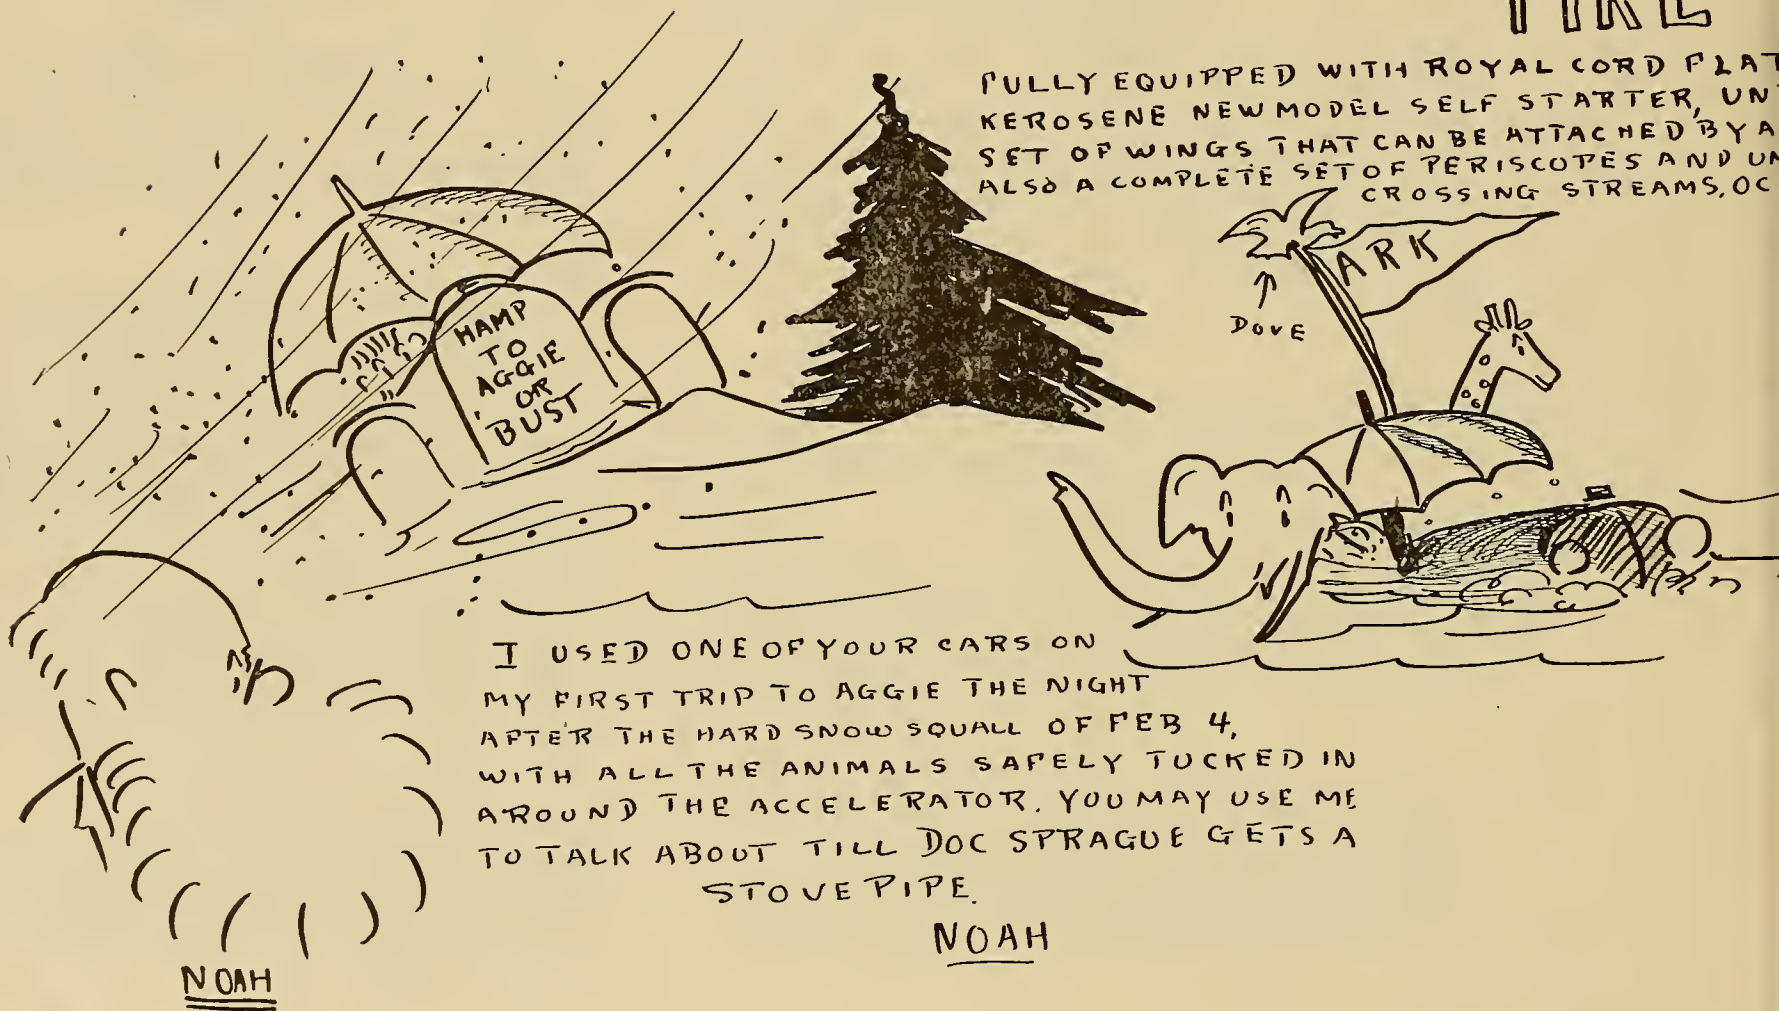 FULLY EQUIPPED WITH ROYAL CORD FLAT
KEROSENE NEW MODEL SELF STARTER,
SET OF WINGS THAT CAN BE ATTACHED BY A
ALSO A COMPLETE SET OF PERISCOPES AND
CROSSING STREAMS,
ARK
DOVE
HAMP
TO
AGGIE
OR
BUST
I USED ONE OF YOUR CARS ON
MY FIRST TRIP TO AGGIE THE NIGHT
AFTER THE HARD SNOW SQUALL OF FEB 4,
WITH ALL THE ANIMALS SAFELY TUCKED IN
AROUND THE ACCELERATOR. YOU MAY USE ME
TO TALK ABOUT TILL DOC SPRAGUE GETS A
STOVE PIPE.
NOAH
NOAH